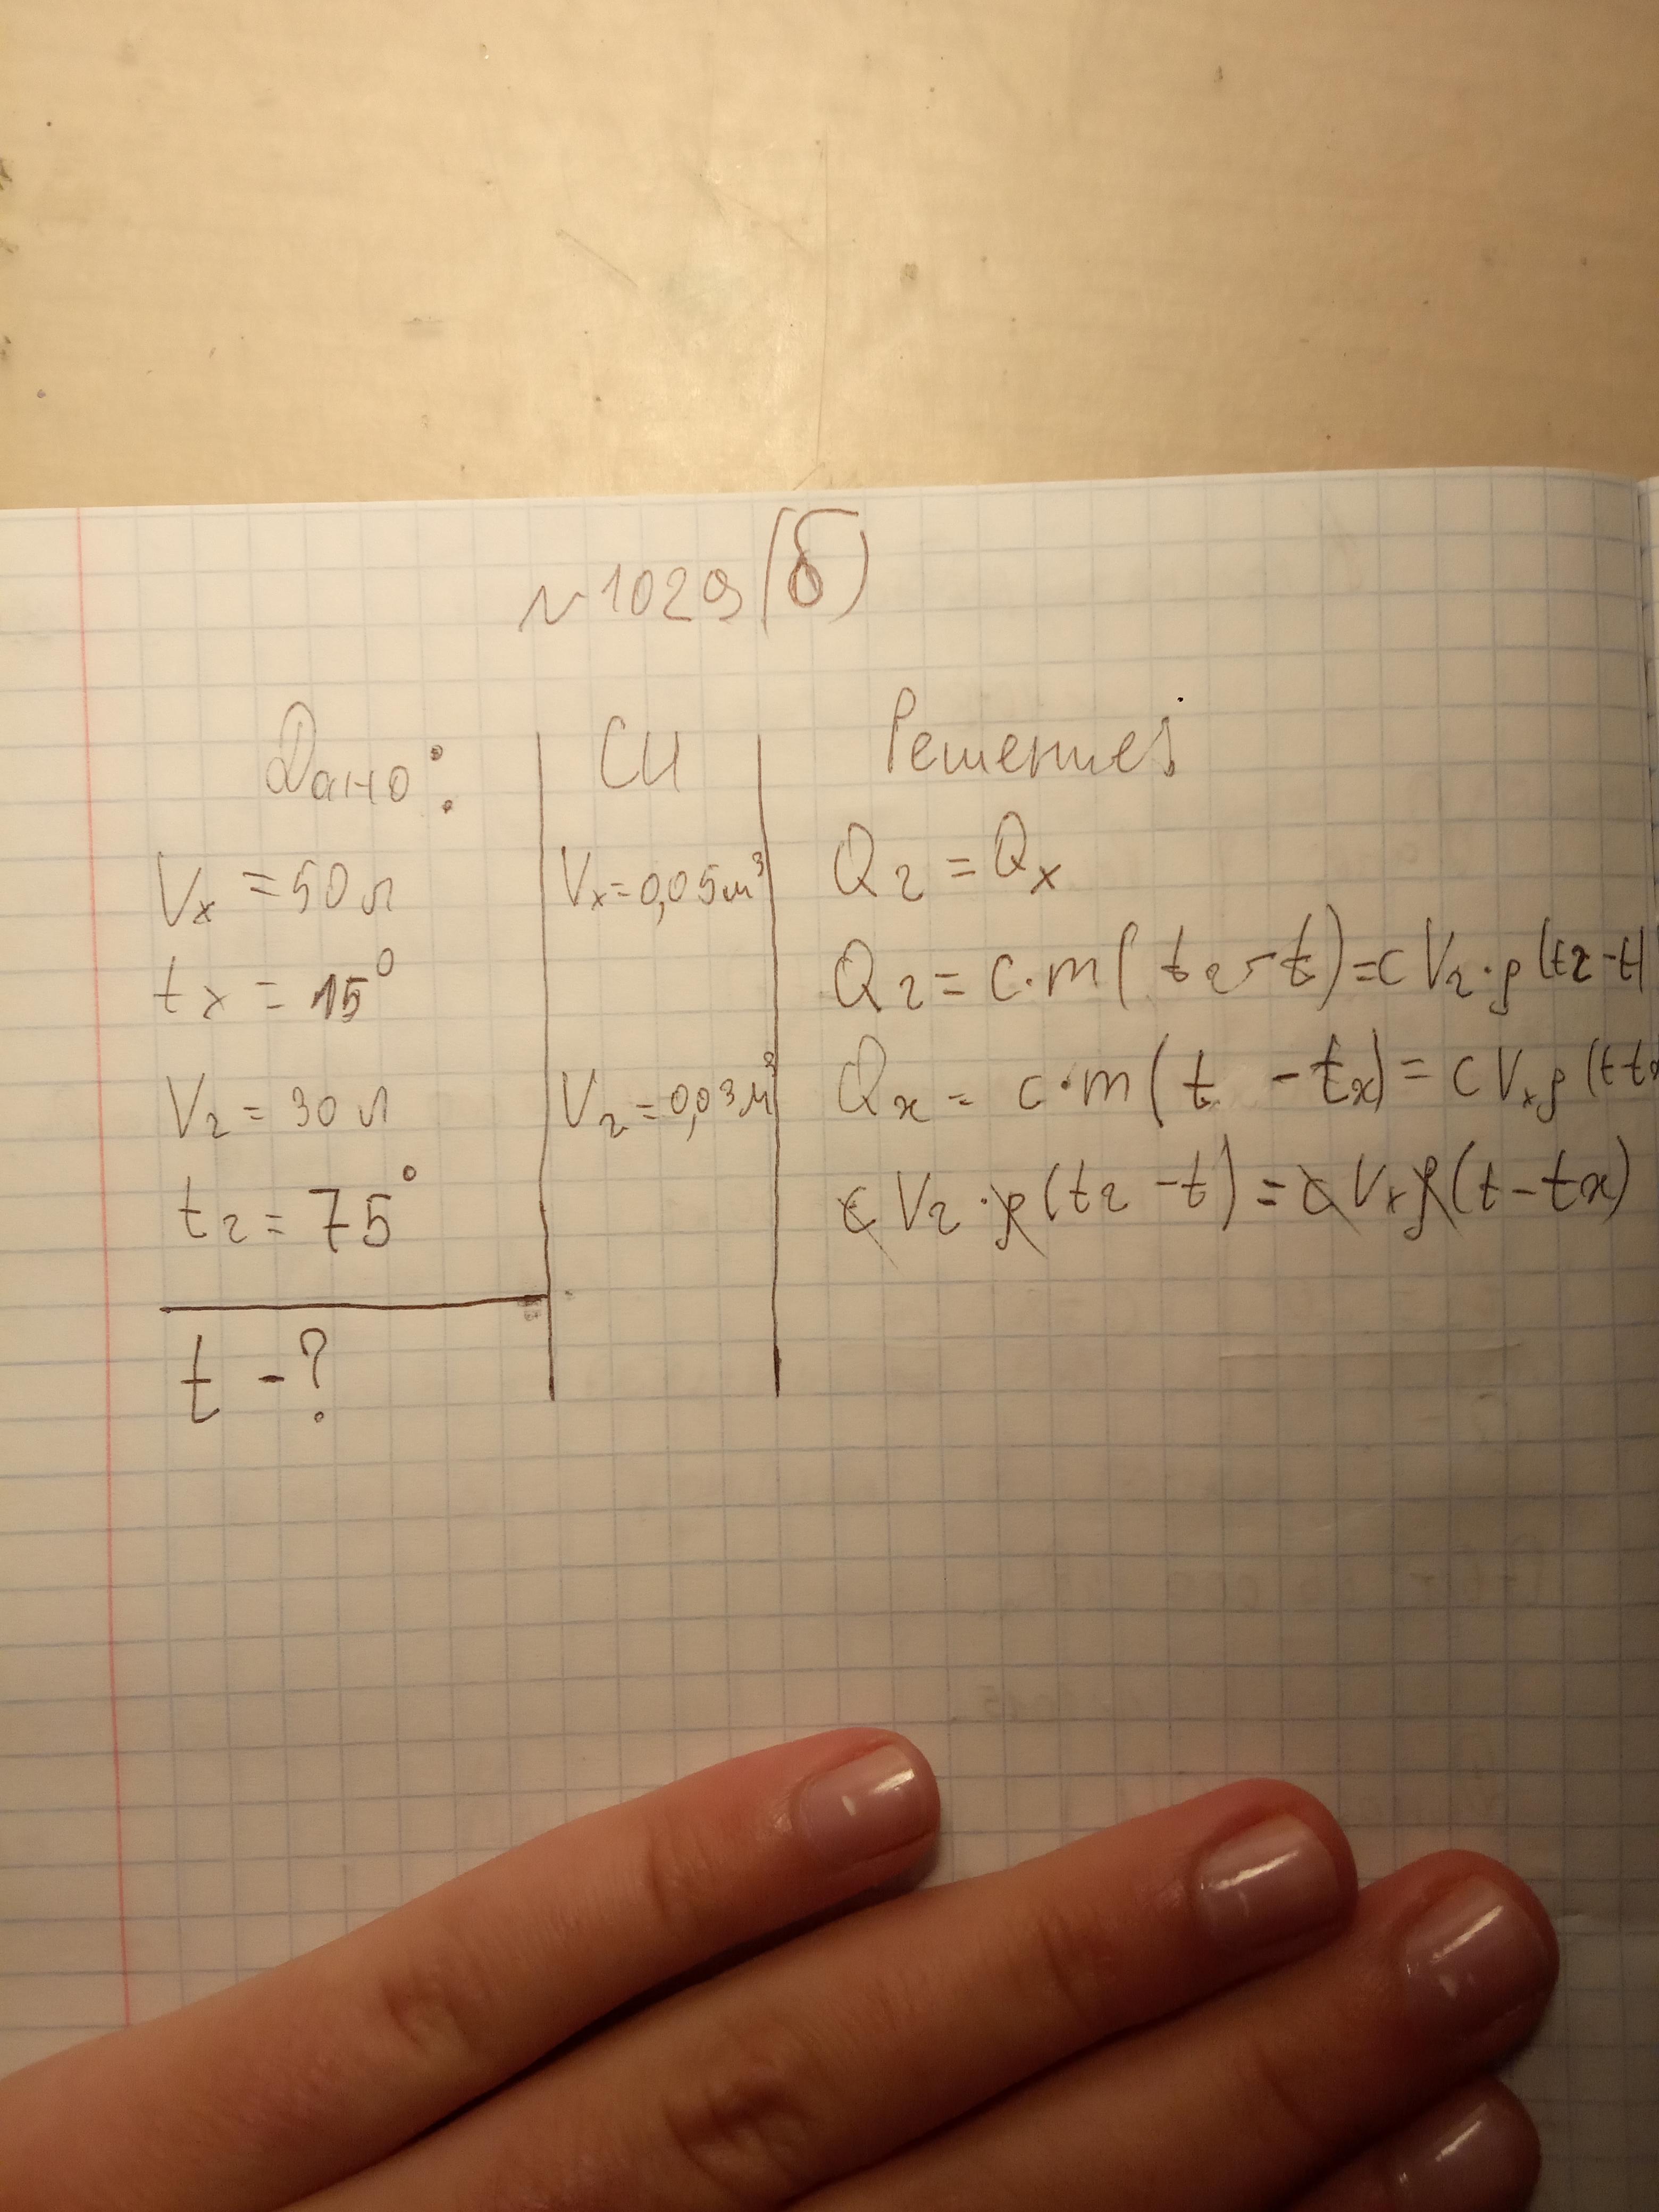 №1029(б)
Дано:
Vx = 50 л
tx = 15°
Vг = 30 л
tг = 75°
t - ?
СИ
Vx=0,05м³
Vг=0,03м³
Решение
Qг = Qx
Qг = c·m(tг - t)=cVг·ρ(tг-t)
Qx = c·m(t - tx)=cVxρ(t tx
cVг·ρ(tг-t)=cVxρ(t-tx)